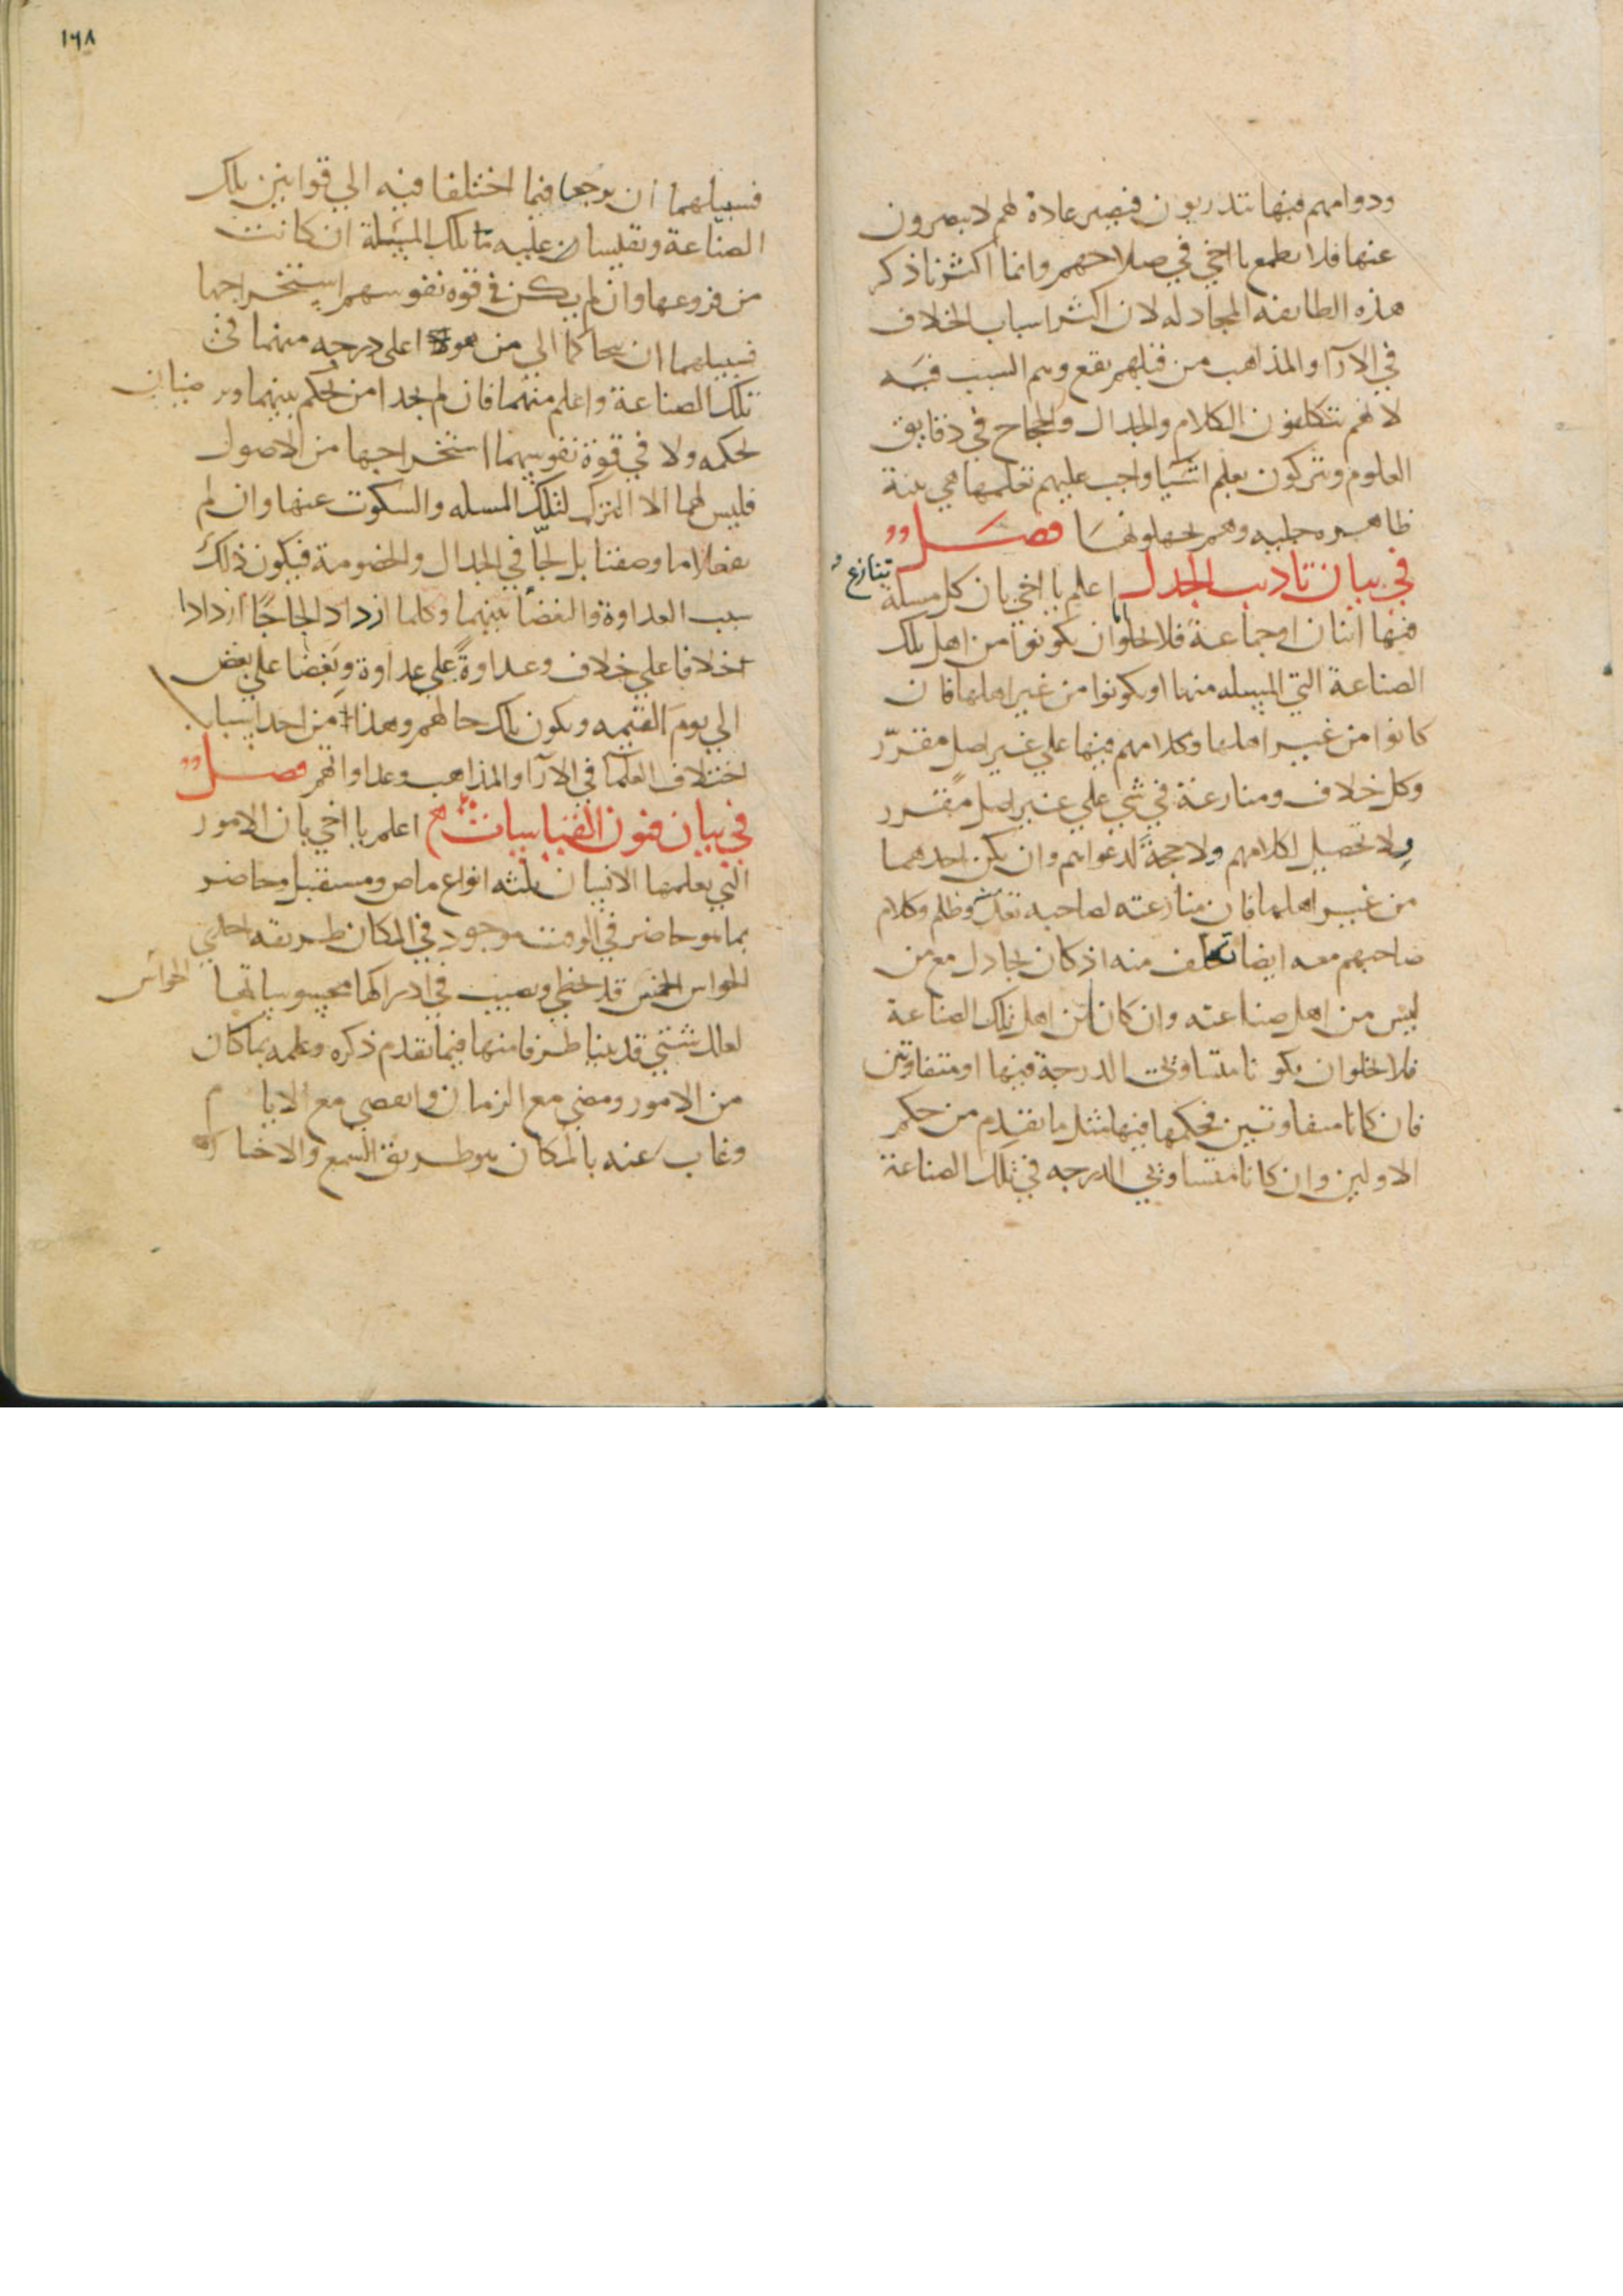 ودوامهم فيها يتدربون فيصير عادة لهم لا يبصرون
عنها فلا تطمع يا اخي في صلاحهم وانما اكثرنا ذكر
هذه الطايفه المجادله لان اكثر اسباب الخلاف
في الآرآ والمذاهب من قبلهم يقع وهم السبب فيه
لانهم يتكلفون الكلام والجدال والحجاج في دقايق
العلوم ويتركون تعلم اشيا واجب عليهم تعلمها هي بينة
ظاهره جليه وهم يجهلونها فصل
في بيان تاديب الجدل اعلم يا اخي بان كل مسلة
تنازع
فيها اثنان او جماعة فلا يخلو اما ان يكونوا من اهل تلك
الصناعة التي المسله منها او يكونوا من غير اهلها فان
كانوا من غير اهلها وكلامهم فيها علي غير اصل مقرّر
وكل خلاف ومنازعة في شي علي غير اصل مقرر
فلا تحصيل لكلامهم ولا حجة لدعواهم وان يكن احدهما
من غير اهلها فان منازعته لصاحبه تعدّ وظلم وكلام
صاحبهم معه ايضا تكلف منه اذ كان يجادل مع من
ليس من اهل صناعته وان كانا من اهل تلك الصناعة
فلا يخلو ان يكونا متساويي الدرجة فيها او متفاوتين
فان كانا متفاوتين فحكمها فيها مثل ما تقدم من حكم
الاولين وان كانا متساويي الدرجه في تلك الصناعة
١٦٨
فسبيلهما ان يرجعا فيما اختلفا فيه الي قوانين تلك
الصناعة ويقيسان عليه تلك المسئلة ان كانت
من فروعها وان لم يكن في قوه نفوسهم استخراجها
فسبيلهما ان يتحاكما الي من هو اعلي درجه منهما في
تلك الصناعة واعلم منهما فان لم يجدا من يحكم بينهما ويرضيان
لحكمه ولا في قوة نفوسهما استخراجها من الاصول
فليس لهما الا الترك لتلك المسله والسكوت عنها وان لم
يفعلا ما وصفنا بل لجّا في الجدال والخصومة فيكون ذلك
سبب العداوة والبغضا بينهما وكلما ازداد الجاجًا ازدادا
خلافا علي خلاف وعداوة علي عداوة وبغضا علي بعض
الي يوم القيمه ويكون تلك حالهم وهذا من احد اسباب
اختلاف العلمآ في الآرآ والمذاهب وعداواتهم فصل
في بيان فنون القياسات اعلم يا اخي بان الامور
التي يعلمها الانسان ثلثه انواع ماض ومستقبل وحاضر
بما هو حاضر في الوقت موجود في المكان طريقه احدي
الحواس
الحواس الخمس قد تخطي وتصيب في ادراكها محسوساتها
لعلل شتي قد بينا طرفا منها فيما تقدم ذكره وعلمه بما كان
من الامور ومضي مع الزمان وانقضي مع الايام
وغاب عنه بالمكان هو طريق السمع والاخبار